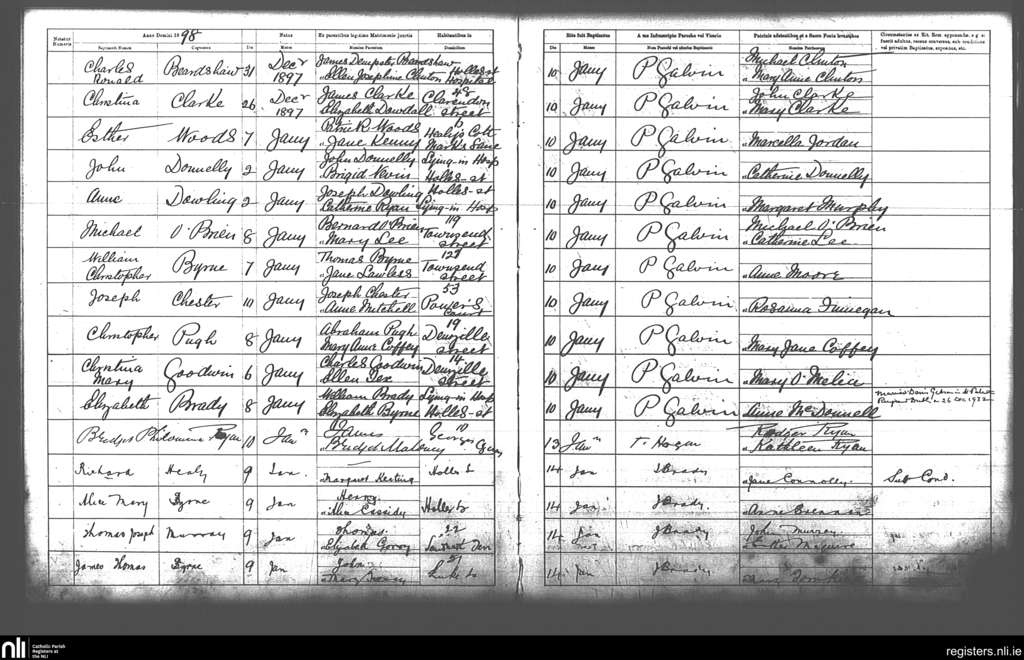 Anno Domini 1898
Natus
Ex parentibus legitimo Matrimonio junctis
Habitantibus in
Rite fuit Baptizatus
A me Infrascripto Parocho vel Vicario
Patrinis adstantibus et a Sacro Fonte levantibus
Die
Mense
Nomina Parentum
Domicilium
Die
Mense
Nomina Patrinorum
Charles Ronald Beardshaw 31 Decr 1897 James Dempster Beardshaw Ellen Josephine Clinton Holles st Hospital 10 Jany P Galvin Michael Clinton Mary Anne Clinton
Christina Clarke 26 Decr 1897 James Clarke Elizabeth Dowdall 48 Clarendon street 10 Jany P Galvin John Clarke Mary Clarke
Esther Woods 7 Jany Patrick Woods Jane Kenny 6 Healy's Cott Marks Lane 10 Jany P Galvin Marcella Jordan
John Donnelly 2 Jany John Donnelly Brigid Nevin Lying-in Hosp Holles-st 10 Jany P Galvin Catherine Donnelly
Anne Dowling 2 Jany Joseph Dowling Catherine Ryan Holles-st Lying-in Hosp 10 Jany P Galvin Margaret Murphy
Michael O'Brien 8 Jany Bernard O'Brien Mary Lee 119 Townsend street 10 Jany P Galvin Michael O'Brien Catherine Lee
William Christopher Byrne 7 Jany Thomas Byrne Jane Lawless Townsend street 10 Jany P Galvin Anne Moore
Joseph Chester 10 Jany Joseph Chester Anne Mitchell 53 Power's Court 10 Jany P Galvin Rosanna Finnegan
Christopher Pugh 8 Jany Abraham Pugh Mary Anne Coffey 19 Denzille street 10 Jany P Galvin Mary Jane Coffey
Christina Mary Goodwin 6 Jany Charles Goodwin Ellen 14 Denzille Street 10 Jany P Galvin Mary O'Melia
Elizabeth Brady 8 Jany William Brady Elizabeth Byrne Lying-in Hosp Holles-st 10 Jany P Galvin Anne McDonnell
Philomena Ryan 10 James Bridget Maloney 10 Georges Quay 13 T. Hogan Rodger Ryan Kathleen Ryan
Richard Healy 9 Jan Margaret Keating Holles St 14 Jan J Brady Jane Connolly Sub Cond.
Alice Mary Byrne 9 Jan Henry Alice Cassidy Holles St 14 Jan J Brady Anne Brennan
Thomas Joseph Murray 9 Jan Thomas 22 14 Jan J Brady John Murray Maguire
James Thomas Byrne 9 Jan John Luke St 14 Jan J Brady
nli Catholic Parish Registers at the NLI
registers.nli.ie